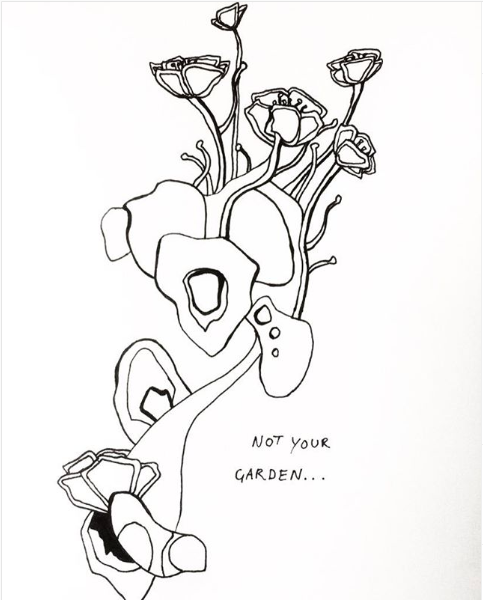 NOT YOUR
GARDEN...